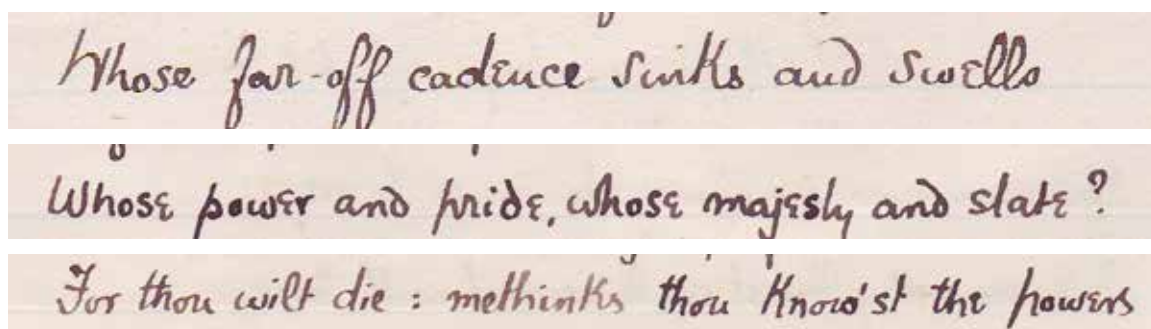 Whose far-off cadence sinks and swells
Whose power and pride, whose majesty and state?
For thou wilt die : methinks thou know'st the powers